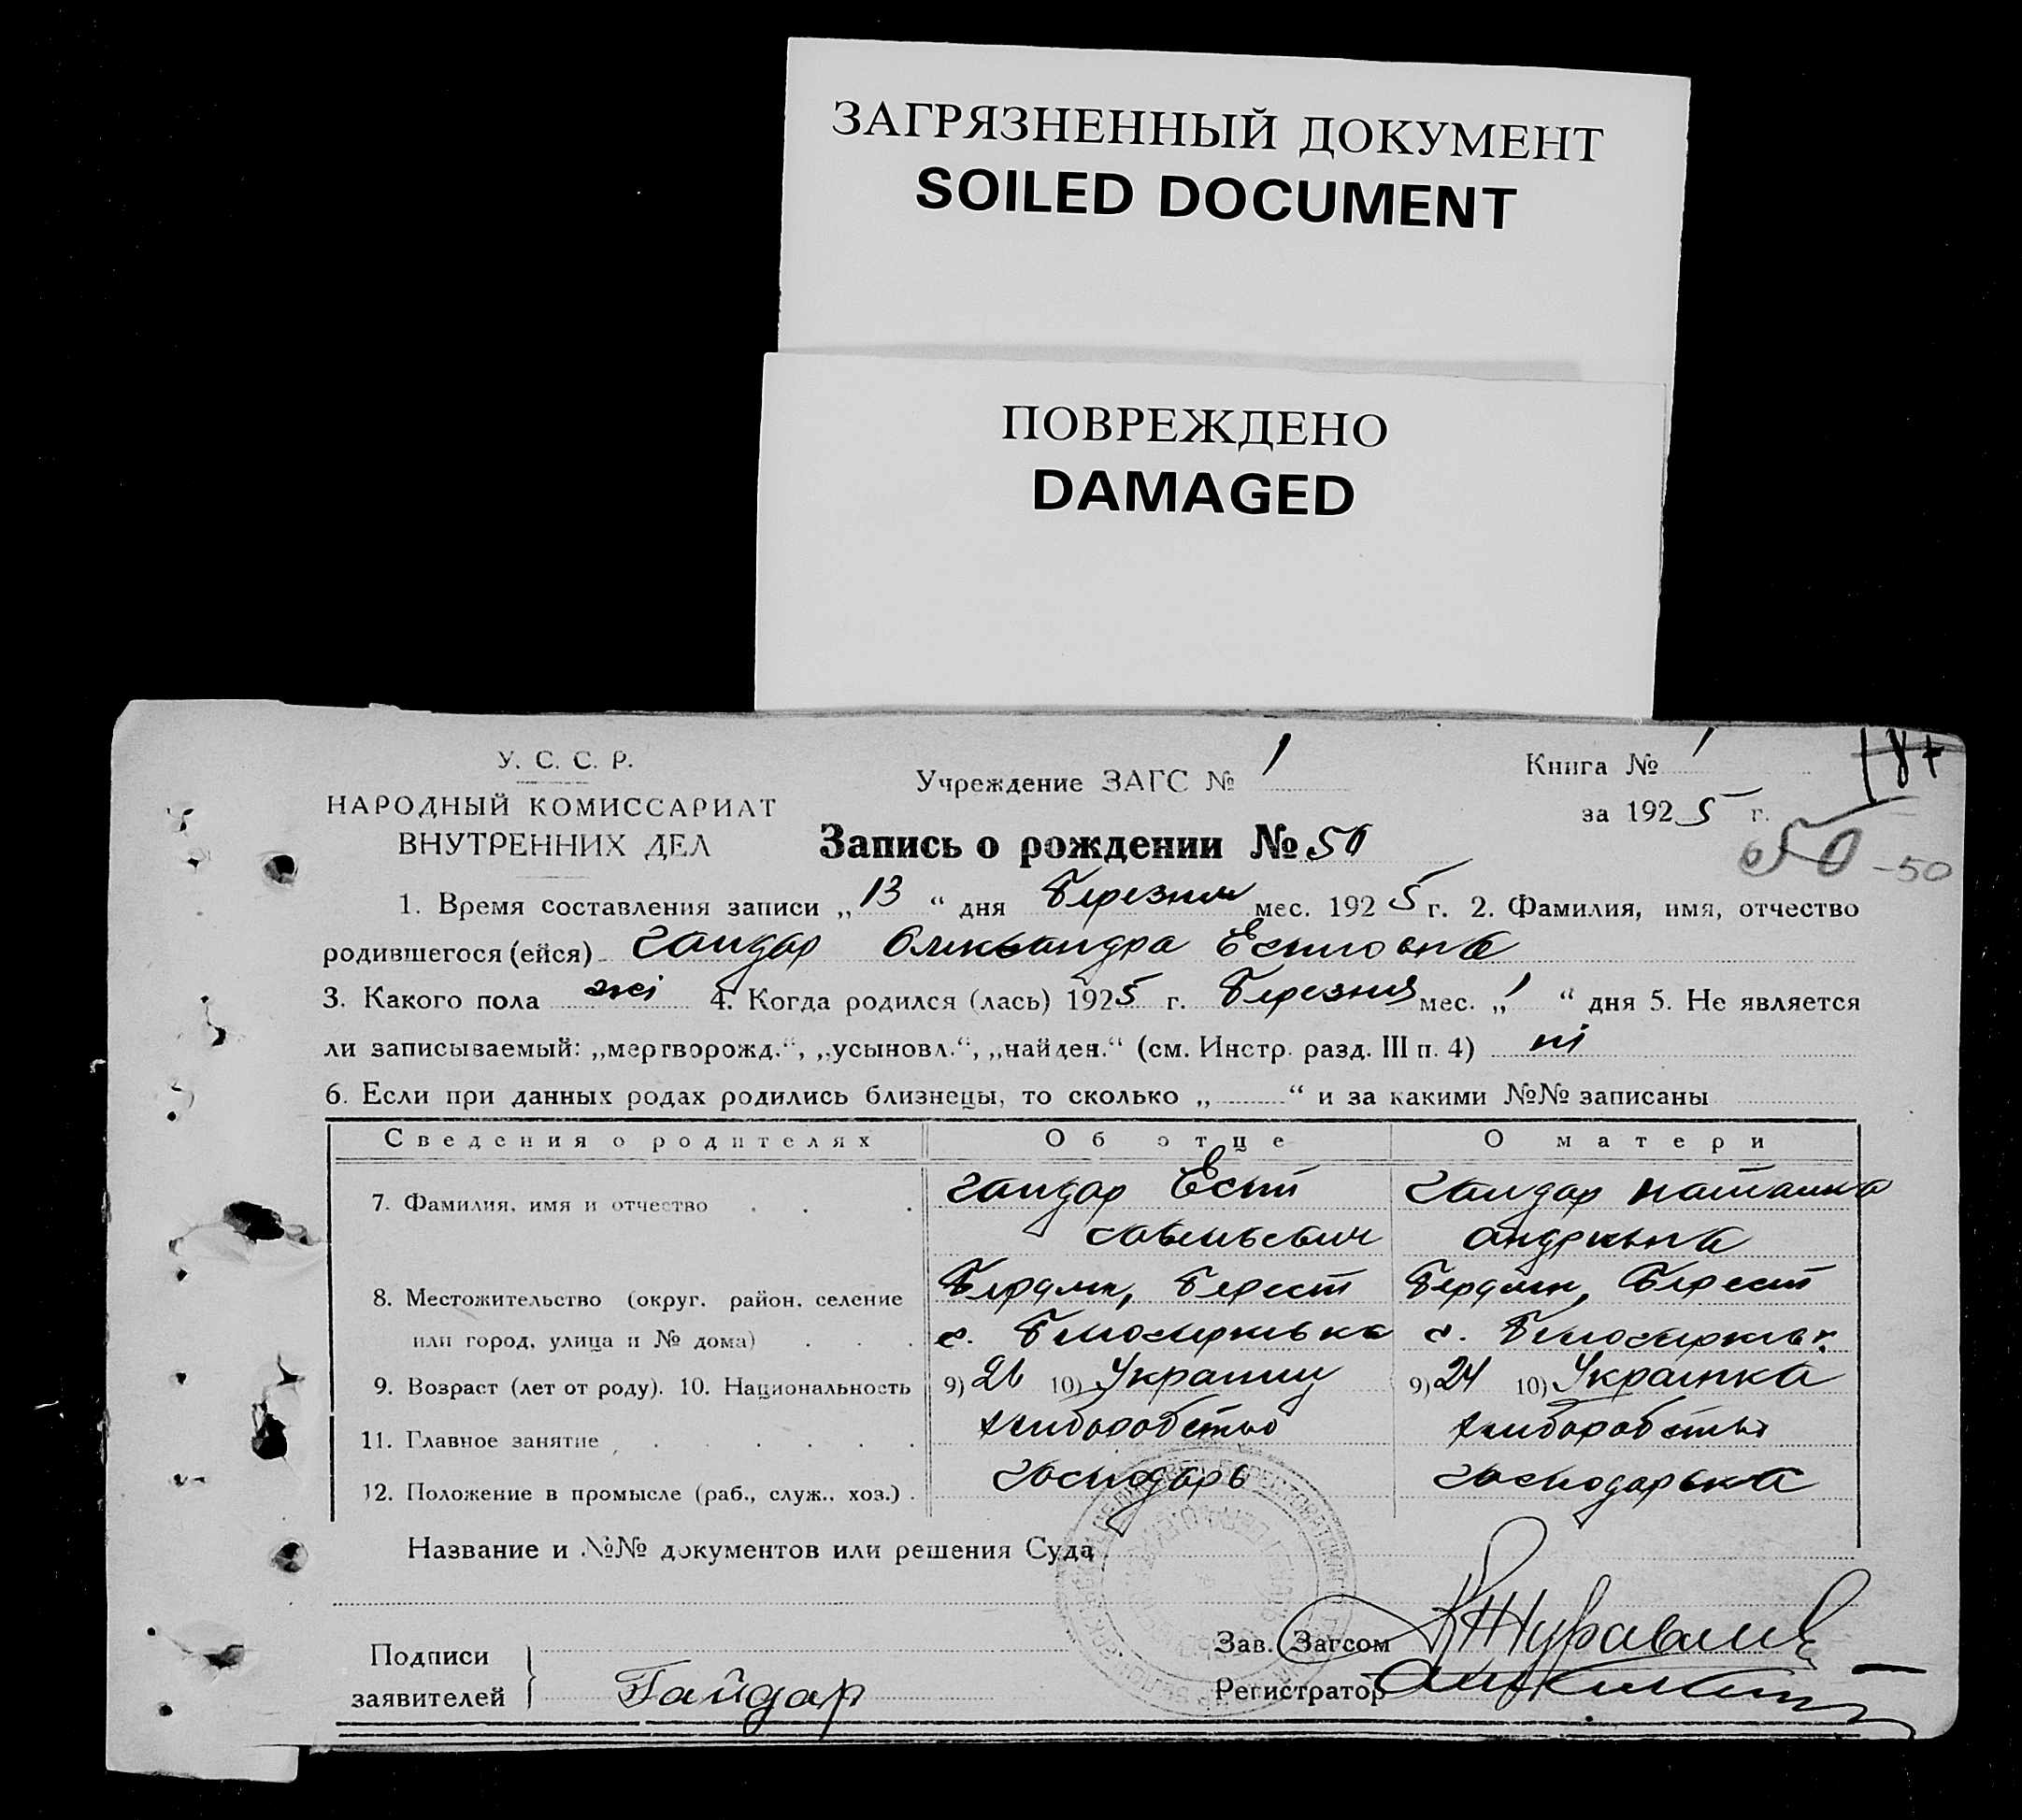 ЗАГРЯЗНЕННЫЙ ДОКУМЕНТ
SOILED DOCUMENT
ПОВРЕЖДЕНО
DAMAGED
У. С. С. Р.
НАРОДНЫЙ КОМИССАРИАТ
ВНУТРЕННИХ ДЕЛ
Учреждение ЗАГС № 1
Книга № 1
за 1925 г.
50 -50
Запись о рождении № 50
1. Время составления записи „13“ дня Березня мес. 1925 г. 2. Фамилия, имя, отчество
родившегося (ейся) Гайдар Олександра
3. Какого пола жі 4. Когда родился (лась) 1925 г. Березня мес. „1“ дня 5. Не является
ли записываемый: „мертворожд.“, „усыновл.“, „найден.“ (см. Инстр. разд. III п. 4) ні
6. Если при данных родах родились близнецы, то сколько „ “ и за какими №№ записаны
Сведения о родителях Об отце О матери
7. Фамилия, имя и отчество Гайдар Гайдар Наталка
8. Местожительство (округ. район, селение Бердян, Берест Бердян, Берест
или город, улица и № дома) с. с.
9. Возраст (лет от роду). 10. Национальность 9) 26 10) Украинец 9) 24 10) Украинка
11. Главное занятие хлиборобство хлиборобство
12. Положение в промысле (раб., служ., хоз.) господарь господарька
Название и №№ документов или решения Суда
Подписи
заявителей Гайдар
Зав. Загсом
Регистратор